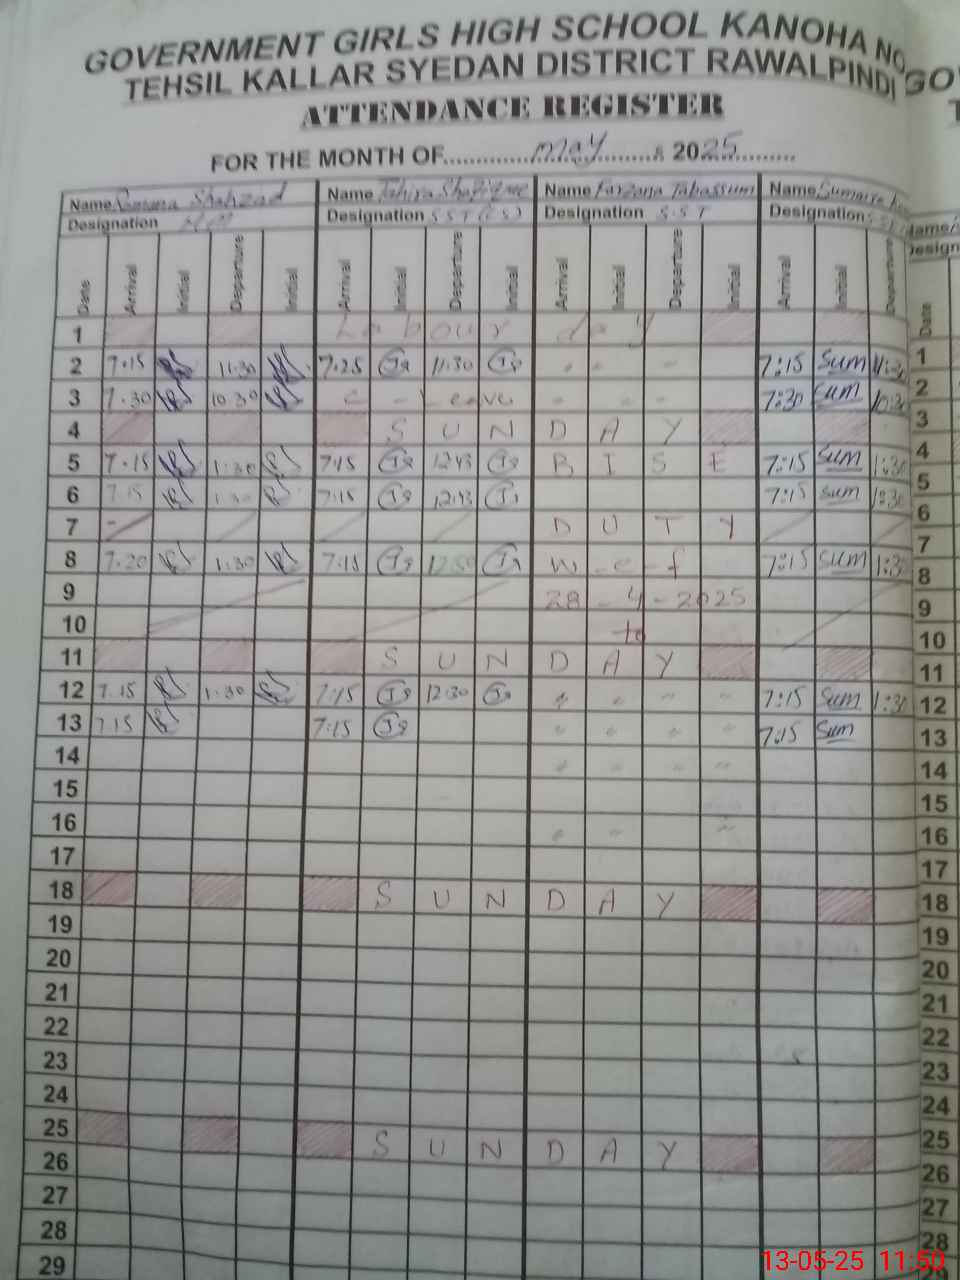 GOVERNMENT GIRLS HIGH SCHOOL KANOHA NO
TEHSIL KALLAR SYEDAN DISTRICT RAWALPINDI
ATTENDANCE REGISTER
FOR THE MONTH OF may 2025
Name Shahzad Name Tahira Shafique Name Farzana Tabassum Name Sumaira
Designation H M Designation SST (CS) Designation S.S.T Designation
Date Arrival Initial Departure Initial Arrival Initial Departure Initial Arrival Initial Departure Initial Arrival Initial Departure
1 Labour day
2 7.15 11:30 7.25 11:30 7:15 Sum 11:30
3 7.30 10:30 c - Leave 7:30 Sum 10:30
4 SUNDAY
5 7.15 1:30 7:15 12:43 B I S E 7:15 Sum 1:30
6 7.15 1:30 7:15 12:43 7:15 sum 1:30
7 D U T Y
8 7.20 1:30 7:15 12:50 w - e - f 7:15 Sum 1:30
9 28 - 4 - 2025
10 to
11 SUNDAY
12 7.15 1:30 7:15 12:30 7:15 Sum 1:30
13 7.15 7:15 7:15 Sum
14
15
16
17
18 SUNDAY
19
20
21
22
23
24
25 SUNDAY
26
27
28
29
GO
T
Name
Design
Date
1
2
3
4
5
6
7
8
9
10
11
12
13
14
15
16
17
18
19
20
21
22
23
24
25
26
27
28
29
13-05-25 11:50